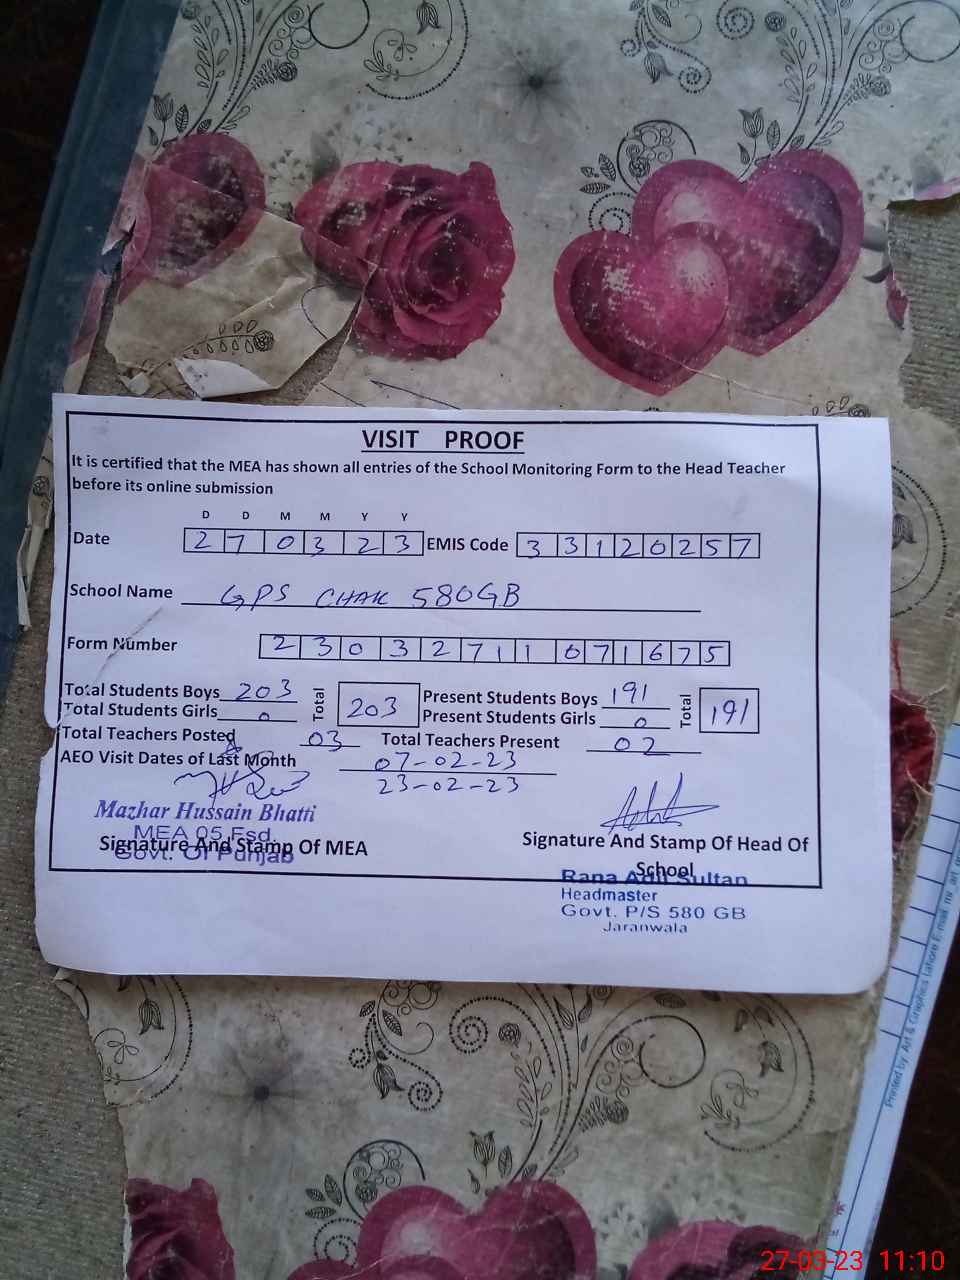 VISIT PROOF
It is certified that the MEA has shown all entries of the School Monitoring Form to the Head Teacher
before its online submission
D D M M Y Y
Date 2 7 0 3 2 3 EMIS Code 3 3 1 2 0 2 5 7
School Name GPS CHAK 580GB
Form Number 2 3 0 3 2 7 1 1 0 7 1 6 7 5
Total Students Boys 203 Total 203 Present Students Boys 191 Total 191
Total Students Girls 0 Present Students Girls 0
Total Teachers Posted 03 Total Teachers Present 02
AEO Visit Dates of Last Month 07-02-23
23-02-23
Mazhar Hussain Bhatti
MEA 05 Fsd.
Signature And Stamp Of MEA
Govt. Of Punjab
Signature And Stamp Of Head Of
School
Rana Adil Sultan
Headmaster
Govt. P/S 580 GB
Jaranwala
Printed by: Art & Graphics Lahore E-mail:
27-03-23 11:10